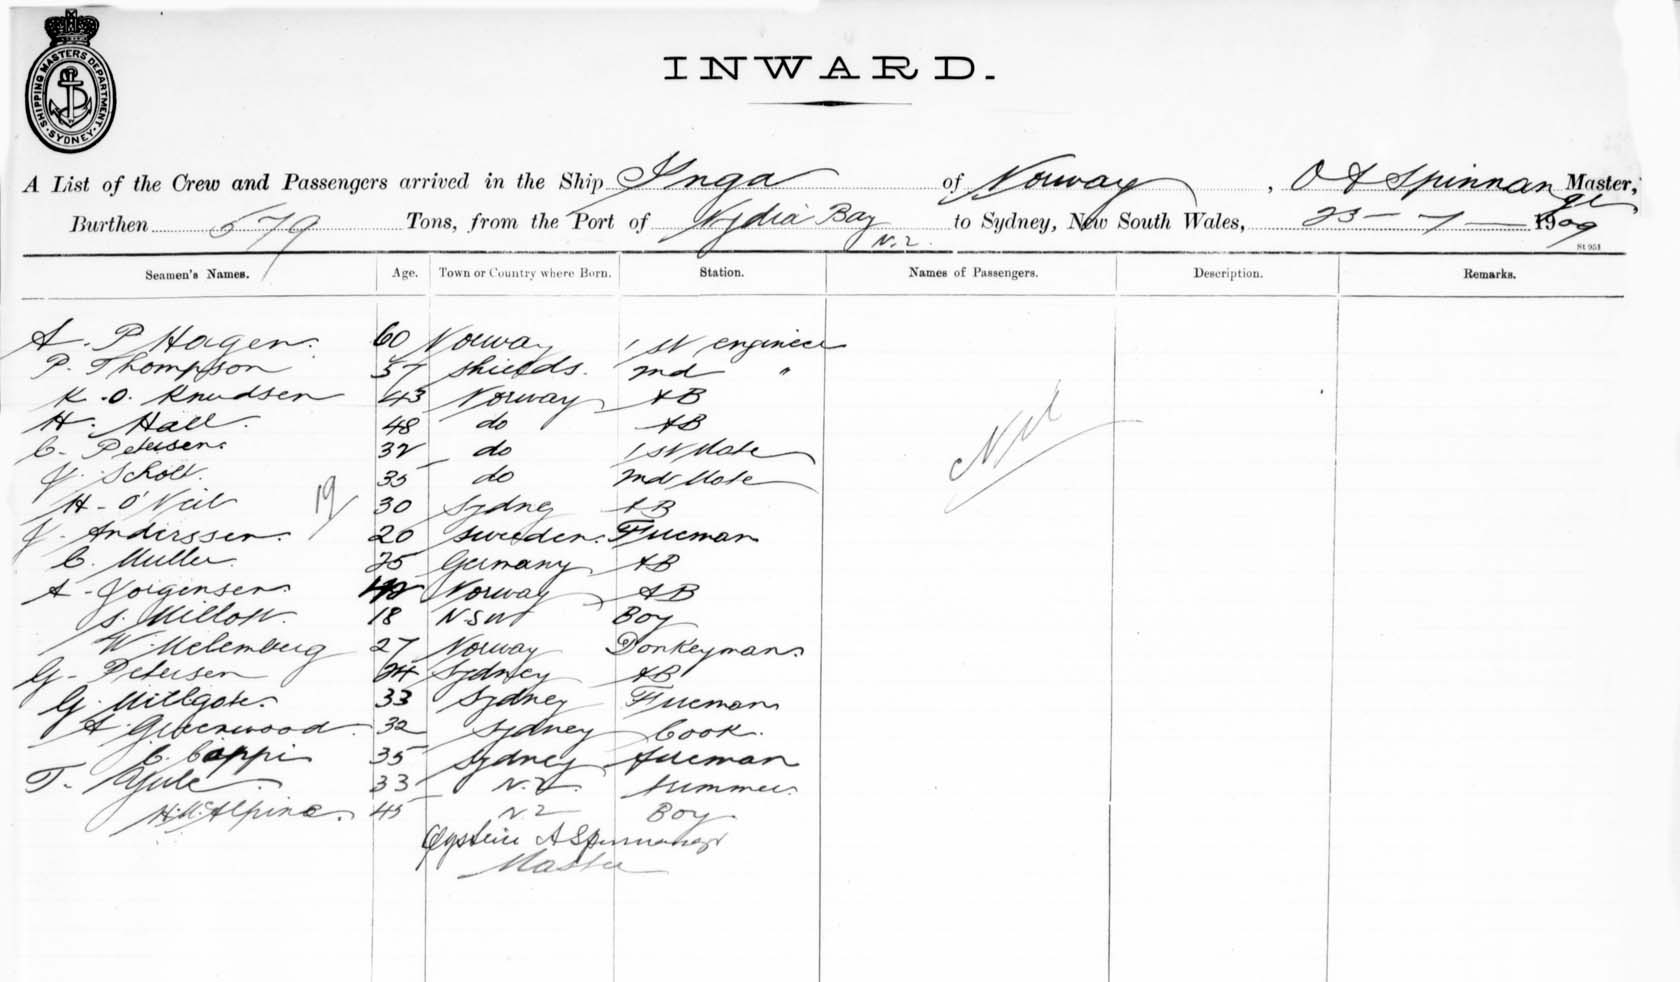 SHIPPING MASTERS DEPARTMENT. SYDNEY.
INWARD.
A List of the Crew and Passengers arrived in the Ship Inga of Norway, O A Spinnan Master,
ge
Burthen 679 Tons, from the Port of Nydia Bay to Sydney, New South Wales, 23 - 7 - 1909
N.Z.
St 951
Seamen's Names. Age. Town or Country where Born. Station. Names of Passengers. Description. Remarks.
A. P Hagen. 60 Norway 1st engineer
P. Thompson 57 Shields. 2nd "
K. O. Knudsen 43 Norway AB
H. Hall. 48 do AB
C. Petersen. 32 do 1st Mate
J. Scholt. 35 do 2nd Mate
Nil
H. O'Neil 30 Sydney AB
19
J. Anderssen. 20 Sweden. Fireman
C. Muller. 25 Germany AB
A. Jorgensen. Norway AB
S. Millott. 18 NSW Boy
W. Melemberg 27 Norway Donkeyman.
G. Petersen 24 Sydney AB
G. Millgate. 33 Sydney Fireman
A. Greenwood. 32 Sydney Cook.
C. Cappi 35 Sydney Fireman
T. Yule. 33 N.Z. Trimmer.
H. McAlpine. 45 N.Z Boy.
Oystein A Spinnanger
Master